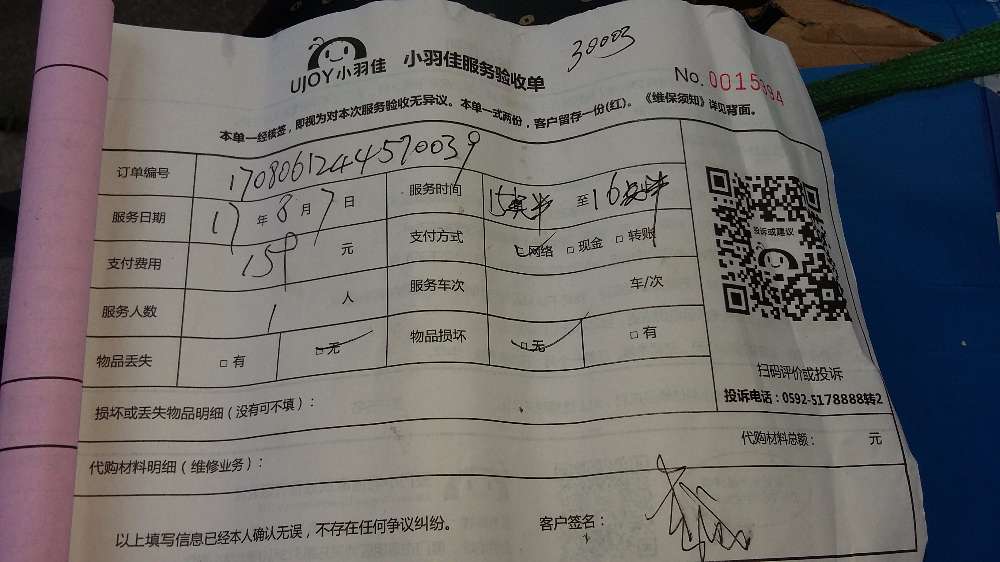 30003
UJOY小羽佳 小羽佳服务验收单
No. 0015394
本单一经核签，即视为对本次服务验收无异议。本单一式两份，客户留存一份(红)。《维保须知》详见背面。
订单编号 1708061244570039
服务日期 17 年 8 月 7 日 服务时间 15点半 至 16点半
支付费用 159 元 支付方式 □网络 □现金 □转账
服务人数 1 人 服务车次 车/次
物品丢失 □有 □无 物品损坏 □无 □有
投诉或建议
扫码评价或投诉
投诉电话：0592-5178888转2
损坏或丢失物品明细（没有可不填）：
代购材料明细（维修业务）： 代购材料总额： 元
以上填写信息已经本人确认无误，不存在任何争议纠纷。 客户签名：